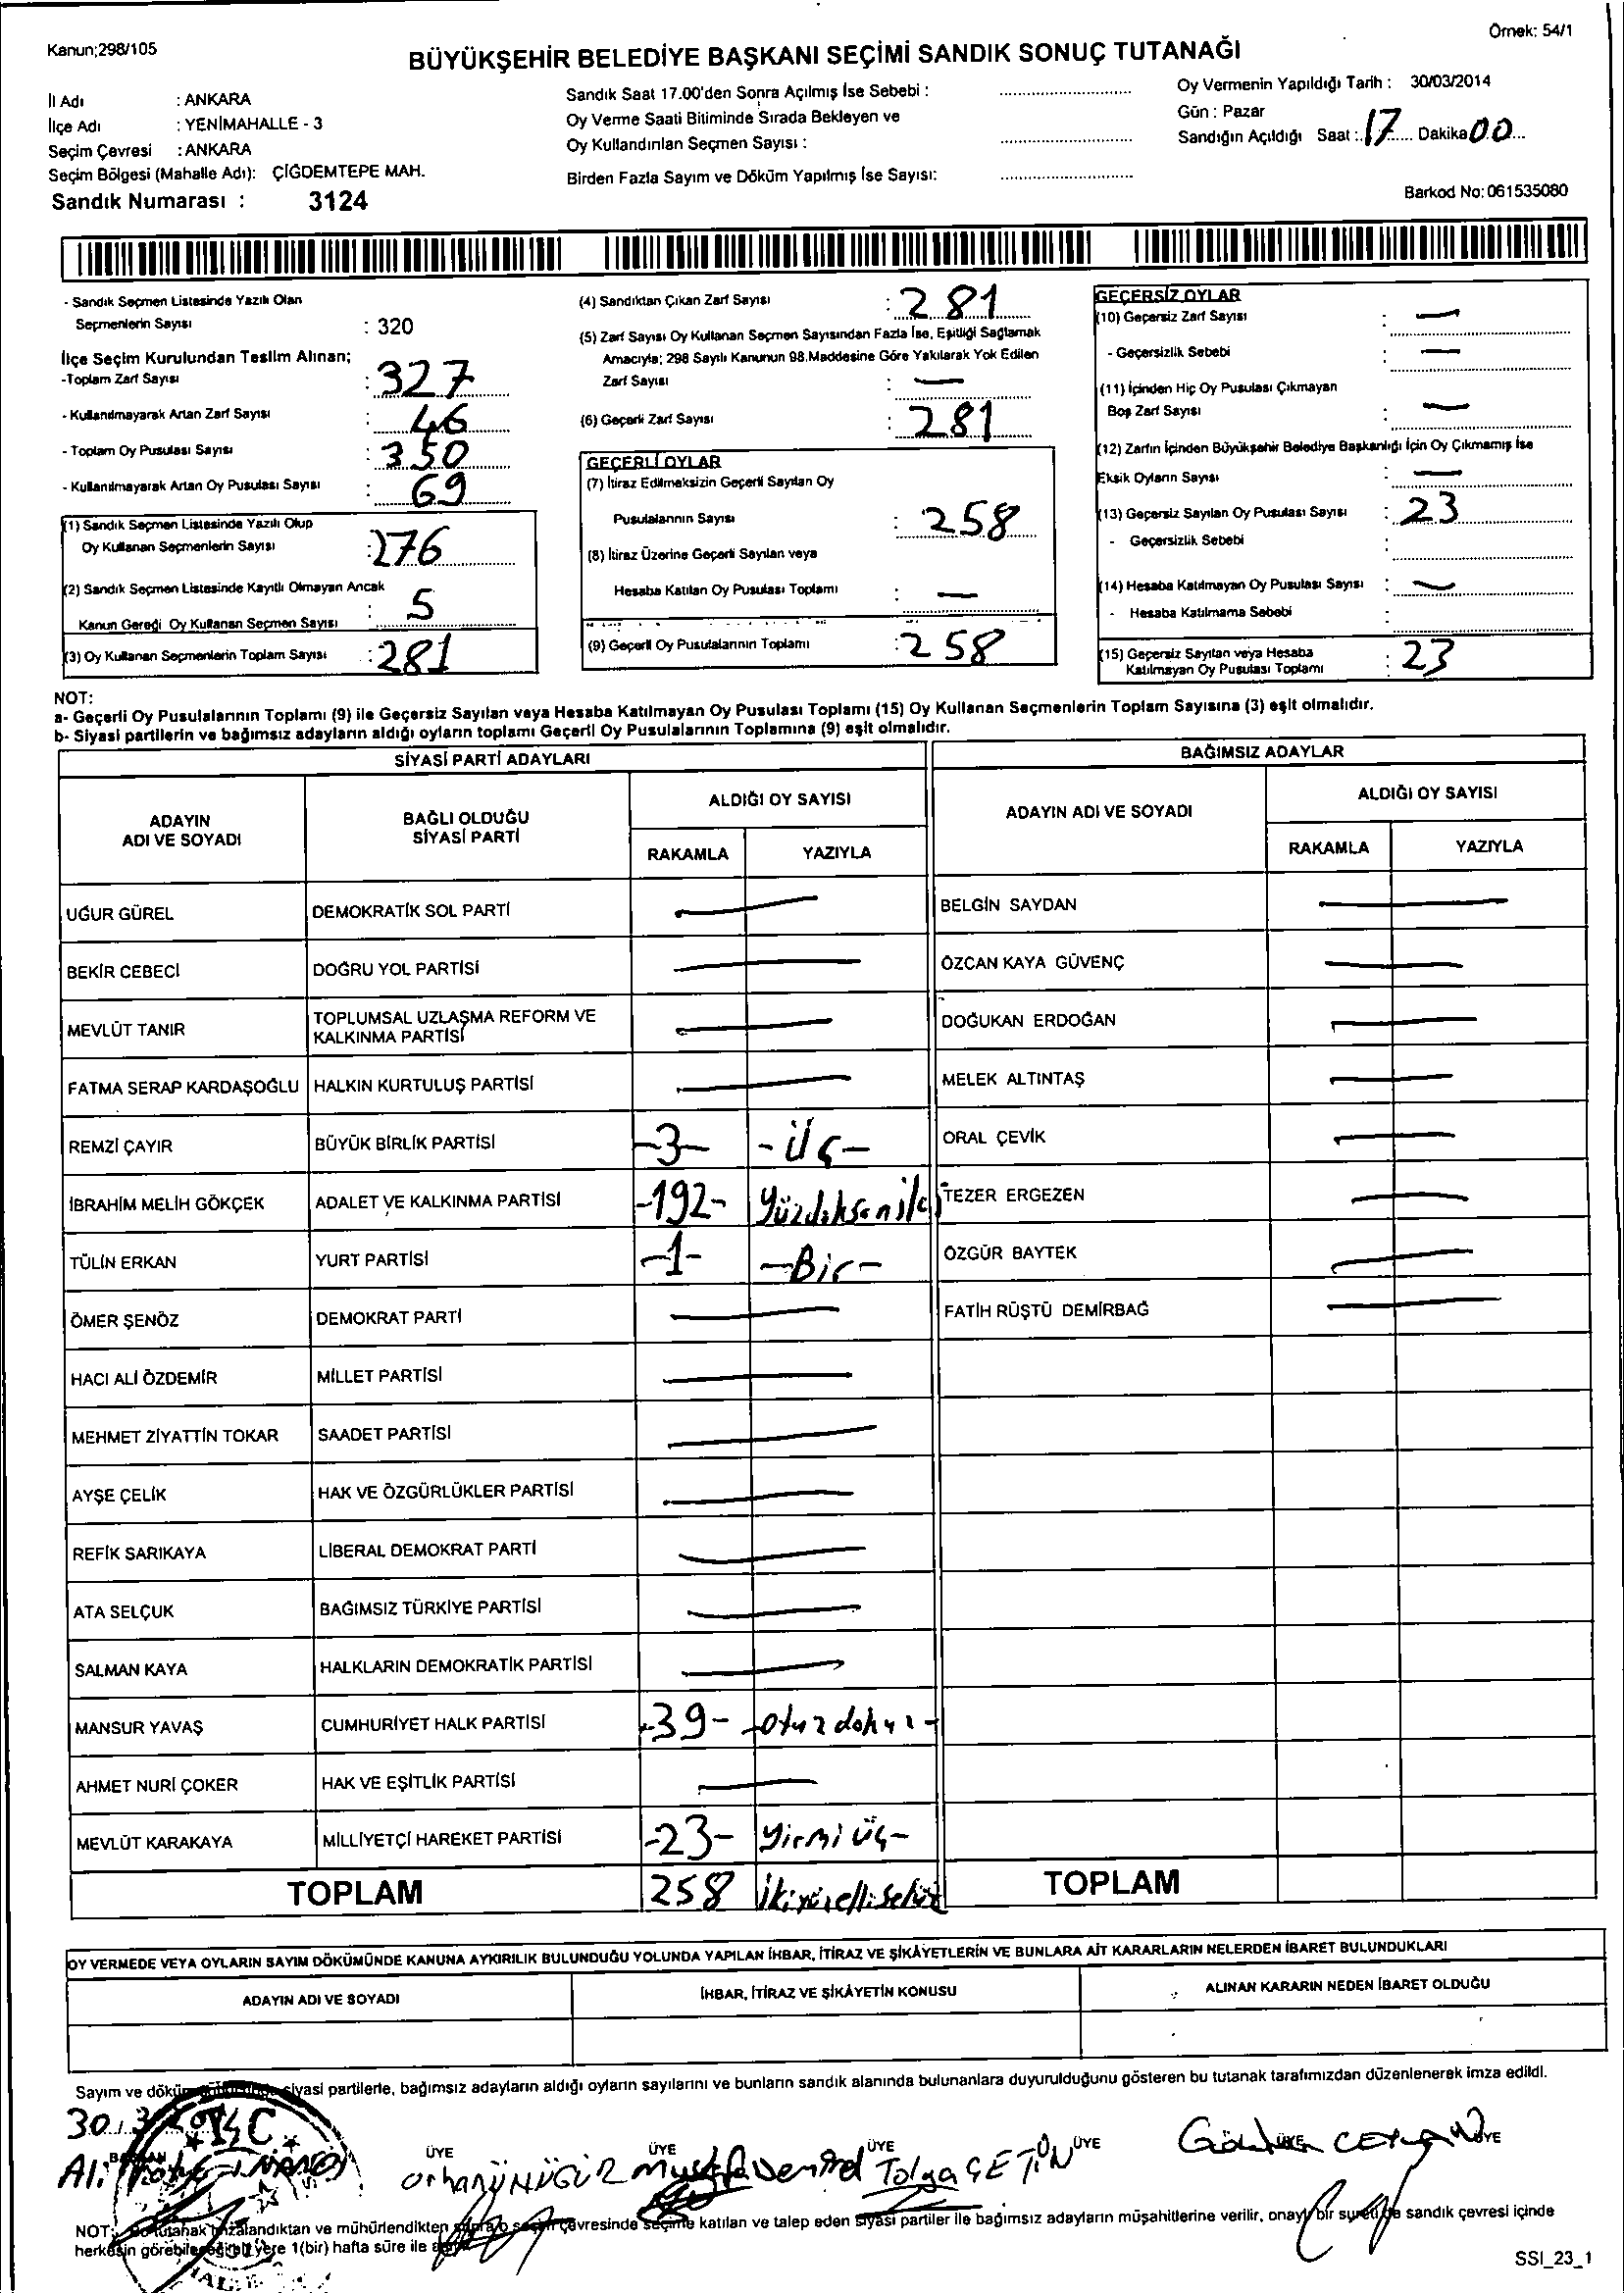 Kanun;298/105
Örnek: 54/1
BÜYÜKŞEHİR BELEDİYE BAŞKANI SEÇİMİ SANDIK SONUÇ TUTANAĞI
İl Adı : ANKARA
İlçe Adı : YENİMAHALLE - 3
Seçim Çevresi : ANKARA
Seçim Bölgesi (Mahalle Adı): ÇİĞDEMTEPE MAH.
Sandık Numarası : 3124
Sandık Saat 17.00'den Sonra Açılmış İse Sebebi :
Oy Verme Saati Bitiminde Sırada Bekleyen ve
Oy Kullandırılan Seçmen Sayısı :
Birden Fazla Sayım ve Döküm Yapılmış İse Sayısı:
Oy Vermenin Yapıldığı Tarih : 30/03/2014
Gün : Pazar
Sandığın Açıldığı Saat : 17 Dakika 00
Barkod No: 061535080
- Sandık Seçmen Listesinde Yazılı Olan
Seçmenlerin Sayısı : 320
İlçe Seçim Kurulundan Teslim Alınan;
-Toplam Zarf Sayısı : 327
- Kullanılmayarak Artan Zarf Sayısı : 46
- Toplam Oy Pusulası Sayısı : 350
- Kullanılmayarak Artan Oy Pusulası Sayısı : 69
(1) Sandık Seçmen Listesinde Yazılı Olup
Oy Kullanan Seçmenlerin Sayısı : 276
(2) Sandık Seçmen Listesinde Kayıtlı Olmayan Ancak
Kanun Gereği Oy Kullanan Seçmen Sayısı : 5
(3) Oy Kullanan Seçmenlerin Toplam Sayısı : 281
(4) Sandıktan Çıkan Zarf Sayısı : 281
(5) Zarf Sayısı Oy Kullanan Seçmen Sayısından Fazla İse, Eşitliği Sağlamak
Amacıyla; 298 Sayılı Kanunun 98.Maddesine Göre Yakılarak Yok Edilen
Zarf Sayısı : —
(6) Geçerli Zarf Sayısı : 281
GEÇERLİ OYLAR
(7) İtiraz Edilmeksizin Geçerli Sayılan Oy
Pusulalarının Sayısı : 258
(8) İtiraz Üzerine Geçerli Sayılan veya
Hesaba Katılan Oy Pusulası Toplamı : —
(9) Geçerli Oy Pusulalarının Toplamı : 258
GEÇERSİZ OYLAR
(10) Geçersiz Zarf Sayısı : —
- Geçersizlik Sebebi : —
(11) İçinden Hiç Oy Pusulası Çıkmayan
Boş Zarf Sayısı : —
(12) Zarfın İçinden Büyükşehir Belediye Başkanlığı İçin Oy Çıkmamış İse
Eksik Oyların Sayısı : —
(13) Geçersiz Sayılan Oy Pusulası Sayısı : 23
- Geçersizlik Sebebi :
(14) Hesaba Katılmayan Oy Pusulası Sayısı : —
- Hesaba Katılmama Sebebi :
(15) Geçersiz Sayılan veya Hesaba
Katılmayan Oy Pusulası Toplamı : 23
NOT:
a- Geçerli Oy Pusulalarının Toplamı (9) ile Geçersiz Sayılan veya Hesaba Katılmayan Oy Pusulası Toplamı (15) Oy Kullanan Seçmenlerin Toplam Sayısına (3) eşit olmalıdır.
b- Siyasi partilerin ve bağımsız adayların aldığı oyların toplamı Geçerli Oy Pusulalarının Toplamına (9) eşit olmalıdır.
SİYASİ PARTİ ADAYLARI
ADAYIN
ADI VE SOYADI
BAĞLI OLDUĞU
SİYASİ PARTİ
ALDIĞI OY SAYISI
RAKAMLA YAZIYLA
UĞUR GÜREL DEMOKRATİK SOL PARTİ —
BEKİR CEBECİ DOĞRU YOL PARTİSİ —
MEVLÜT TANIR TOPLUMSAL UZLAŞMA REFORM VE
KALKINMA PARTİSİ —
FATMA SERAP KARDAŞOĞLU HALKIN KURTULUŞ PARTİSİ —
REMZİ ÇAYIR BÜYÜK BİRLİK PARTİSİ -3- -üç-
İBRAHİM MELİH GÖKÇEK ADALET VE KALKINMA PARTİSİ -192- Yüzdoksaniki
TÜLİN ERKAN YURT PARTİSİ -1- -Bir-
ÖMER ŞENÖZ DEMOKRAT PARTİ —
HACI ALİ ÖZDEMİR MİLLET PARTİSİ —
MEHMET ZİYATTİN TOKAR SAADET PARTİSİ —
AYŞE ÇELİK HAK VE ÖZGÜRLÜKLER PARTİSİ —
REFİK SARIKAYA LİBERAL DEMOKRAT PARTİ —
ATA SELÇUK BAĞIMSIZ TÜRKİYE PARTİSİ —
SALMAN KAYA HALKLARIN DEMOKRATİK PARTİSİ —
MANSUR YAVAŞ CUMHURİYET HALK PARTİSİ -39- -otuzdokuz-
AHMET NURİ ÇOKER HAK VE EŞİTLİK PARTİSİ —
MEVLÜT KARAKAYA MİLLİYETÇİ HAREKET PARTİSİ -23- Yirmi üç-
TOPLAM 258 İkiyüzellisekiz
BAĞIMSIZ ADAYLAR
ADAYIN ADI VE SOYADI
ALDIĞI OY SAYISI
RAKAMLA YAZIYLA
BELGİN SAYDAN —
ÖZCAN KAYA GÜVENÇ —
DOĞUKAN ERDOĞAN —
MELEK ALTINTAŞ —
ORAL ÇEVİK —
TEZER ERGEZEN —
ÖZGÜR BAYTEK —
FATİH RÜŞTÜ DEMİRBAĞ —
TOPLAM
OY VERMEDE VEYA OYLARIN SAYIM DÖKÜMÜNDE KANUNA AYKIRILIK BULUNDUĞU YOLUNDA YAPILAN İHBAR, İTİRAZ VE ŞİKÂYETLERİN VE BUNLARA AİT KARARLARIN NELERDEN İBARET BULUNDUKLARI
ADAYIN ADI VE SOYADI İHBAR, İTİRAZ VE ŞİKÂYETİN KONUSU ALINAN KARARIN NEDEN İBARET OLDUĞU
Sayım ve döküm siyasi partilerle, bağımsız adayların aldığı oyların sayılarını ve bunların sandık alanında bulunanlara duyurulduğunu gösteren bu tutanak tarafımızdan düzenlenerek imza edildi.
30.3.2014
T.C
BAŞKAN ÜYE ÜYE ÜYE ÜYE ÜYE ÜYE
Ali Orhan ÜNÜGÜR Mustafa Demirel Tolga ÇETİN Gökhan CEYLAN
NOT: Bu tutanak imzalandıktan ve mühürlendikten seçim çevresinde seçime katılan ve talep eden siyasi partiler ile bağımsız adayların müşahitlerine verilir, onaylı bir sureti de sandık çevresi içinde
herkesin görebileceği bir yere 1(bir) hafta süre ile
SSI_23_1